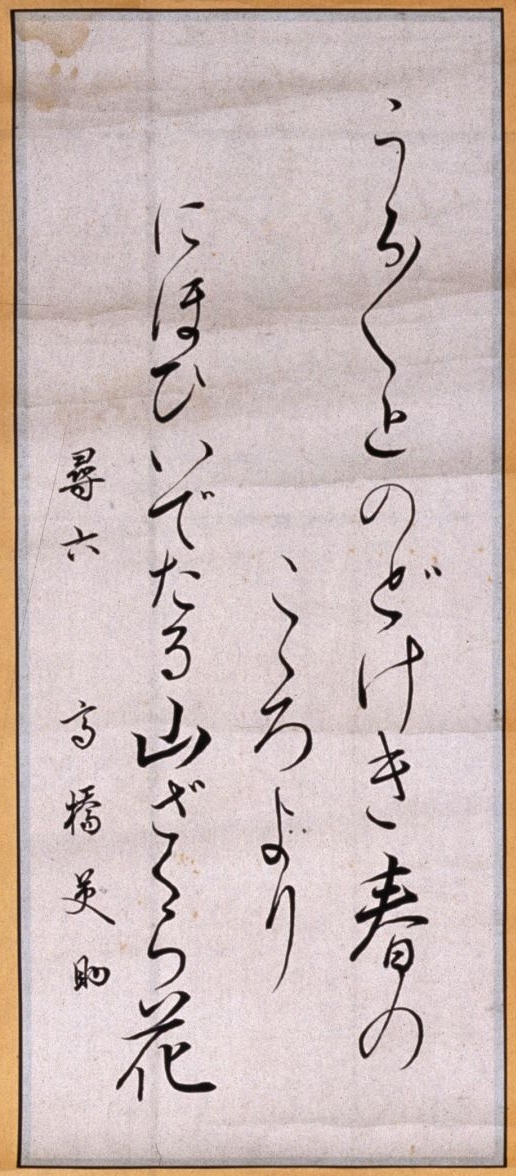 うら〱とのどけき春の
こゝろより
にほひいでたる山ざくら花
尋六 高橋英助